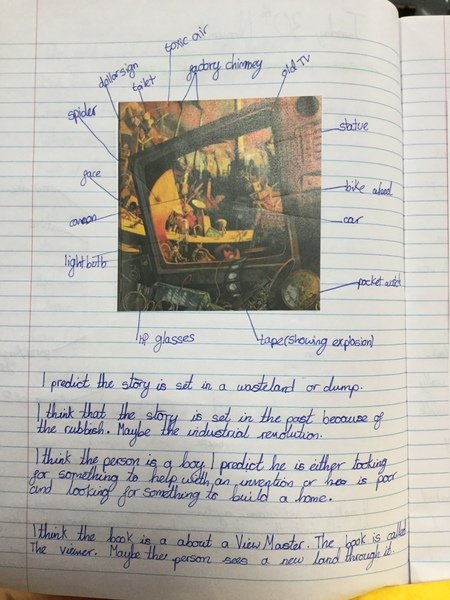 toxic air
dollar sign
toilet
factory chimney
old TV
spider
statue
face
bike wheel
cannon
car
lightbulb
pocket watch
glasses
tape (showing explosion)
I predict the story is set in a wasteland or dump.
I think that the story is set in the past because of
the rubbish. Maybe the industrial revolution.
I think the person is a boy. I predict he is either looking
for something to help with an invention or he is poor
and looking for something to build a home.
I think the book is a about a View Master. The book is called
The viewer. Maybe the person sees a new land through it.